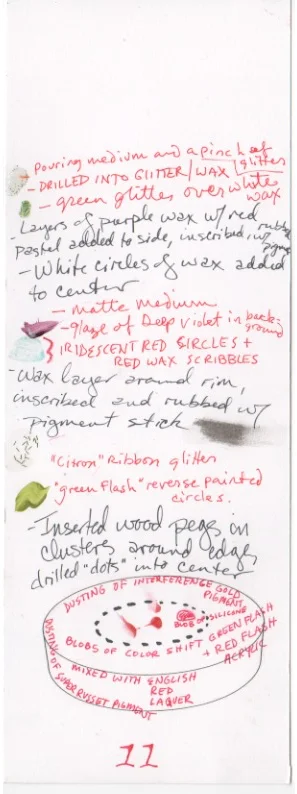 - Pouring medium and a pinch of glitter
- DRILLED INTO GLITTER/WAX
- green glitter over white wax
- Layers of purple wax w/ red
pastel added to side, inscribed, w/
- White circles of wax added
to center
- matte medium
- glaze of Deep Violet in back-
ground
IRIDESCENT RED CIRCLES +
RED WAX SCRIBBLES
- Wax layer around rim,
inscribed and rubbed w/
pigment stick
"Citron" Ribbon glitter
"green flash" reverse painted
circles.
- Inserted wood pegs in
clusters around edges
drilled "dots" into center
DUSTING OF INTERFERENCE GOLD
PIGMENT
BLOB OF SILICONE
BLOBS OF COLOR SHIFT GREEN FLASH
+ RED FLASH
ACRYLIC
MIXED WITH ENGLISH
RED
LAQUER
DUSTING OF SUPER RUSSET PIGMENT
11